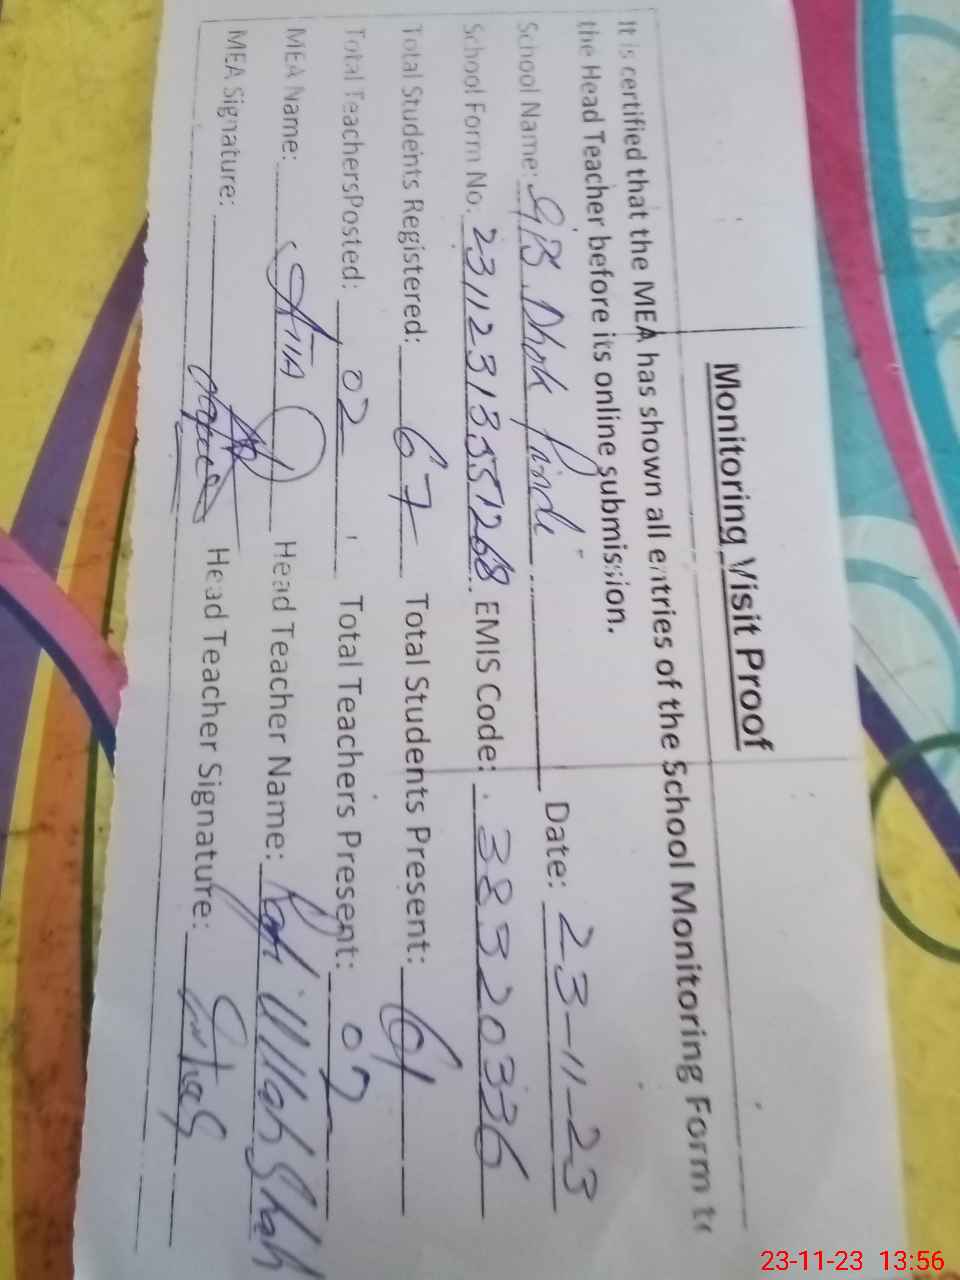 Monitoring Visit Proof
It is certified that the MEA has shown all entries of the School Monitoring Form to
the Head Teacher before its online submission.
School Name: GPS Dhok Pindi Date: 23-11-23
School Form No. EMIS Code: 38320336
Total Students Registered: 67 Total Students Present: 61
Total TeachersPosted: 02 Total Teachers Present: 02
MEA Name: Head Teacher Name: Ullah Shah
MEA Signature: Head Teacher Signature:
23-11-23 13:56